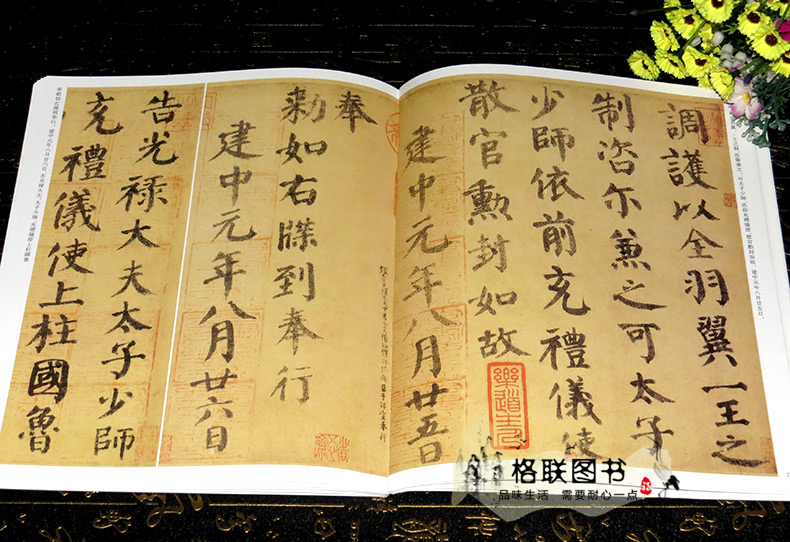 調護以全羽翼一王之
制咨尔兼之可太子
少師依前充禮儀使
散官勲封如故
建中元年八月廿五日
奉
勅如右牒到奉行
建中元年八月廿六日
告光禄大夫太子少師
充禮儀使上柱國魯
格联图书
品味生活 需要耐心一点